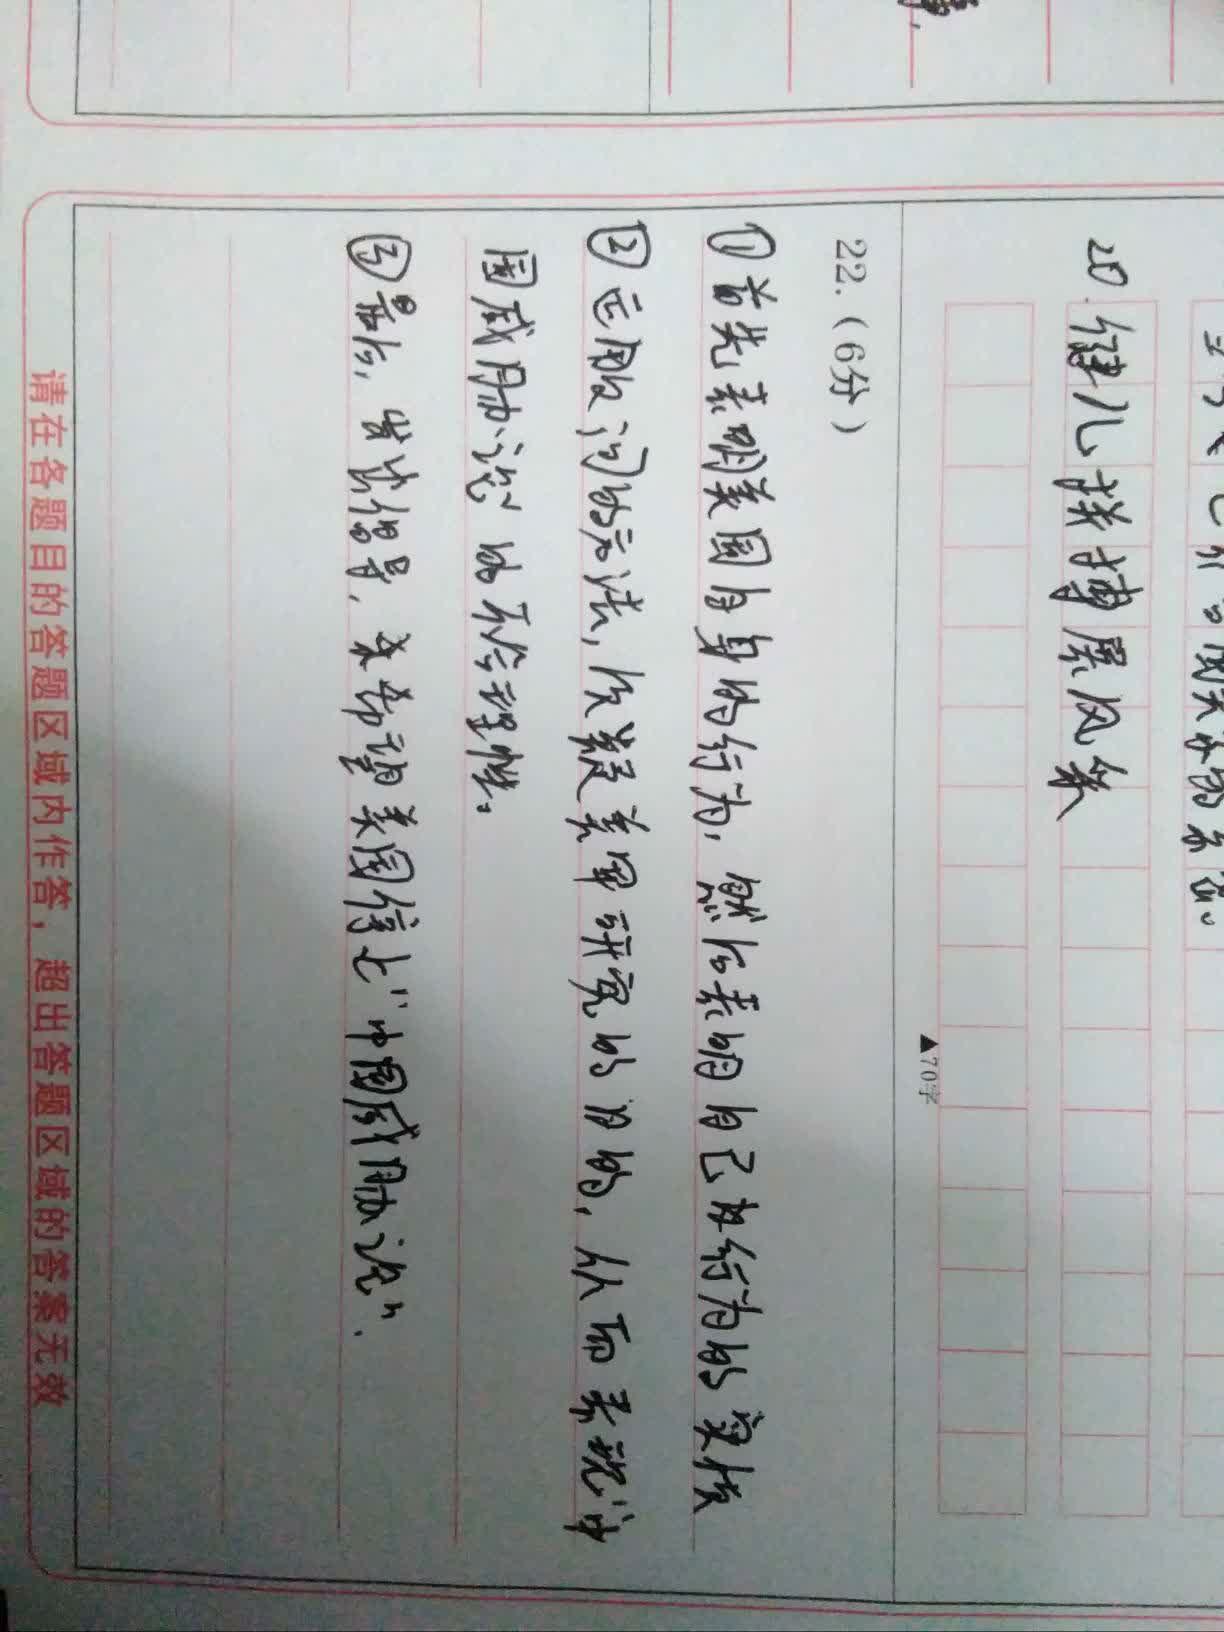 20.健儿拼搏展风采
▲70字
22.(6分)
①首先表明美国自身的行为,然后表明自己及行为的实质
②运用反问的方法,质疑美军研究的目的,从而表现“中
国威胁论”的不合理性。
③最后,发出倡导,来希望美国停止“中国威胁论”.
请在各题目的答题区域内作答,超出答题区域的答案无效